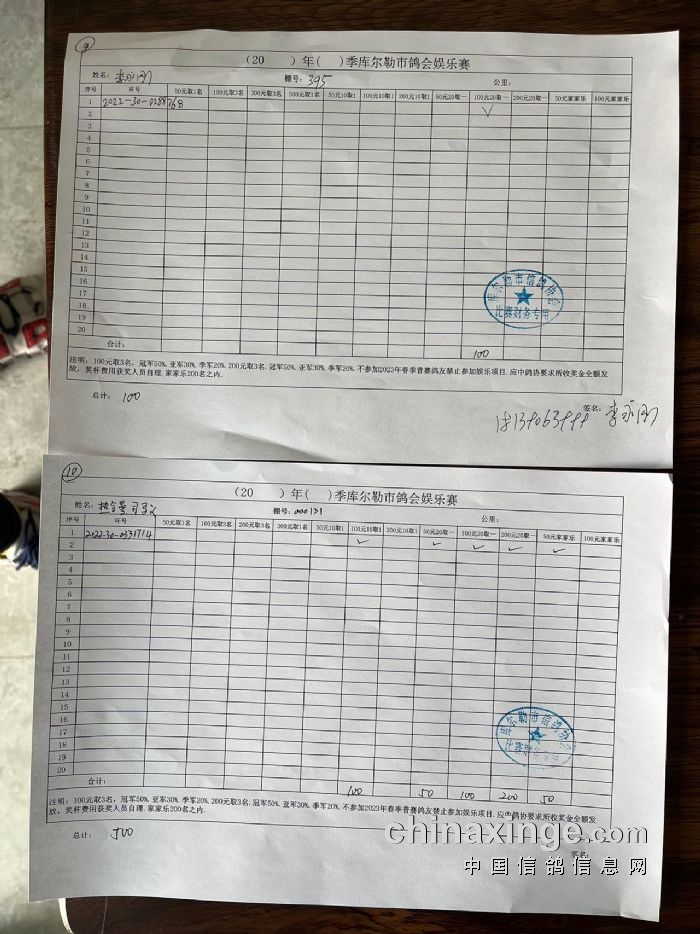 9
(20 ) 年 ( ) 季库尔勒市鸽会娱乐赛
姓名: 李永刚 棚号: 395 公里:
序号 环号 50元取1名 100元取3名 200元取3名 300元取1名 50元10取1 100元10取1 200元10取1 50元20取一 100元20取一 200元20取一 50元家家乐 100元家家乐
1 2022-30-0288768 ✓
2
3
4
5
6
7
8
9
10
11
12
13
14
15
16
17
18
19
20
库尔勒市信鸽协会
比赛财务专用
合计: 100
注明: 100元取3名, 冠军50%.亚军30%.季军20%.200元取3名.冠军50%.亚军30%.季军20%.不参加2023年春季普赛鸽友禁止参加娱乐项目.应中鸽协要求所收奖金全额发
放, 奖杯费用获奖人员自理.家家乐200名之内.
总计: 100
签名: 李永刚
10
(20 ) 年 ( ) 季库尔勒市鸽会娱乐赛
姓名: 棚号: 000131 公里:
序号 环号 50元取1名 100元取3名 200元取3名 300元取1名 50元10取1 100元10取1 200元10取1 50元20取一 100元20取一 200元20取一 50元家家乐 100元家家乐
1 2022-30-0331714 ✓ ✓ ✓ ✓ ✓
2
3
4
5
6
7
8
9
10
11
12
13
14
15
16
17
18
19
20
库尔勒市信鸽协会
合计: 100 50 100 200 50
注明: 100元取3名, 冠军50%.亚军30%.季军20%.200元取3名.冠军50%.亚军30%.季军20%.不参加2023年春季普赛鸽友禁止参加娱乐项目.应中鸽协要求所收奖金全额发
放, 奖杯费用获奖人员自理.家家乐200名之内.
总计: 500
签名:
chinaxinge.com
中国信鸽信息网